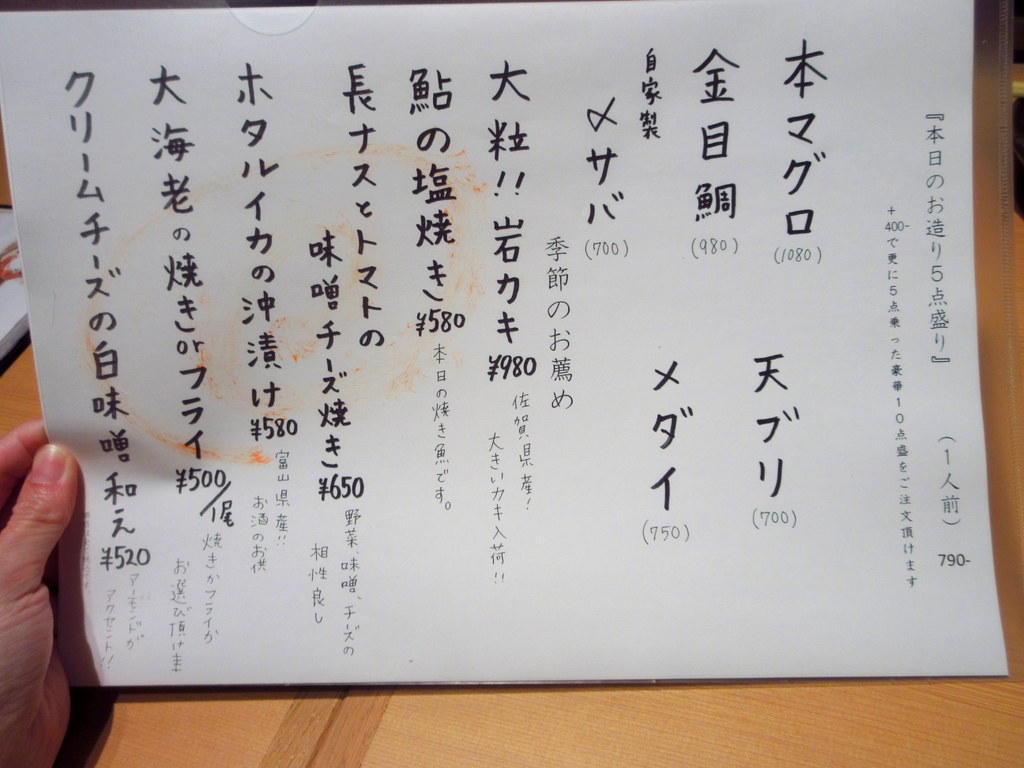 『本日のお造り5点盛り』 (1人前) 790-
+400-で更に5点乗った豪華10点盛をご注文頂けます
本マグロ
(1080)
天ブリ
(700)
金目鯛
(980)
メダイ
(750)
自家製
〆サバ
(700)
季節のお薦め
大粒!!岩カキ ¥980
佐賀県産!
大きいカキ入荷!!
鮎の塩焼き ¥580
本日の焼き魚です。
長ナスとトマトの
味噌チーズ焼き ¥650
野菜、味噌、チーズの
相性良し
ホタルイカの沖漬け ¥580
富山県産!!
お酒のお供
大海老の焼きorフライ ¥500/1尾
焼きかフライか
お選び頂けます
クリームチーズの白味噌和え ¥520
アーモンドが
アクセント!